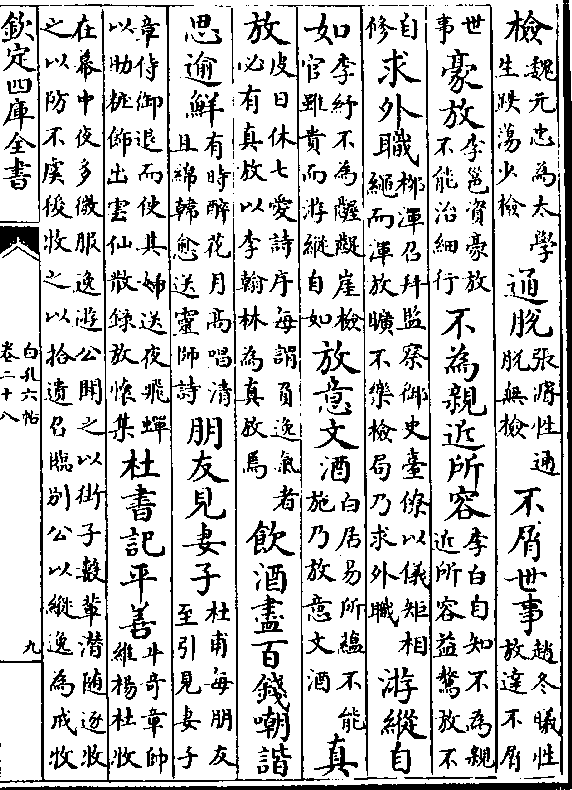 檢魏元忠為太學
生跌蕩少檢通脫張性通
脫無檢不屑世事趙冬曦性
放達不屑
世
事豪放李邕資豪放
不能治細行不為親近所容李白自知不為親
近所容益驁放不
自
修求外職柳渾召拜監察御史臺僚以儀矩相
繩而渾放曠不樂檢局乃求外職游縱自
如李紓不為齷齪崖檢
官雖貴而游縱自如放意文酒白居易所蘊不能
施乃放意文酒真
放皮日休七愛詩序每謂負逸氣者
必有真放以李翰林為真放焉飲酒盡百錢嘲諧
思逾鮮有時醉花月高唱清
且綿韓愈送靈師詩朋友見妻子杜甫每朋友
至引見妻子
章侍御退而使其姊送夜飛蟬
以助粧飾出雲仙散錄放懷集杜書記平善斗奇章帥
維楊杜牧
在幕中夜多微服逸游公聞之以街子數輩潜随逐牧
之以防不虞後牧之以拾遺召臨別公以縱逸為戒牧
欽定四庫全書
白孔六帖
卷二十八
九